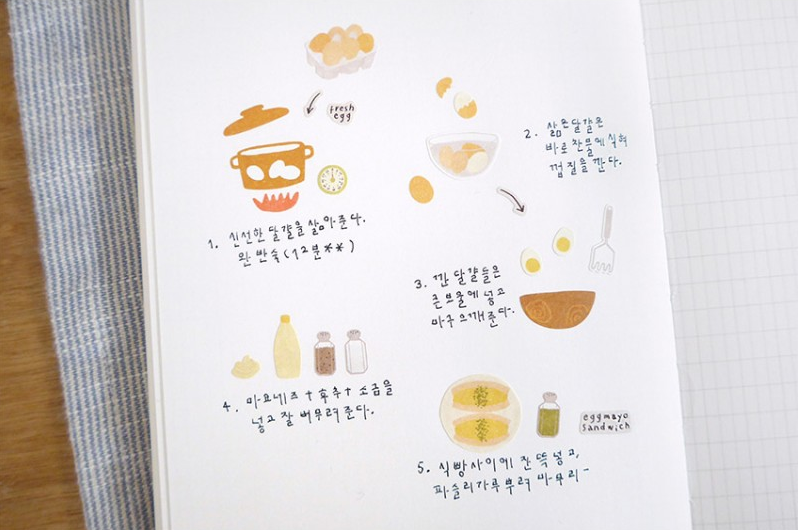 fresh
egg
1. 신선한 달걀을 삶아준다.
완반숙(12분**)
2. 삶은달걀은
바로찬물에 식혀
껍질을 깐다.
3. 깐 달걀들은
큰보울에 넣고
마구 으깨준다.
4. 마요네즈 + 후추 + 소금을
넣고 잘 버무려준다.
eggmayo
sandwich
5. 식빵사이에 잔뜩 넣고,
파슬리가루뿌려 마무리-